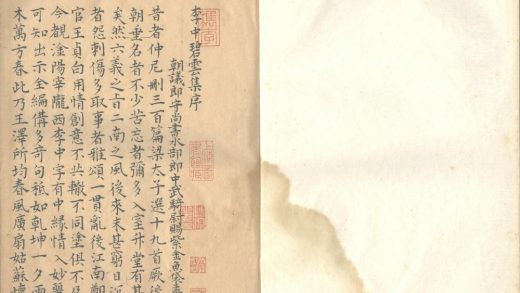 李中碧雲集序
朝議郎守尚書水部郎中武騎尉賜紫金魚袋孟
昔者仲尼刪三百篇梁太子選十九首厥後
朝垂名者不少苦志者彌多入室升堂有其
矣然六義之旨二南之風後來未甚窮日沉
者怨刺傷多取事者雅頌一貫亂後江南鄭
官王貞白用情創意不共轍不同塗俱不及
今觀淦陽宰隴西李中字有中緣情入妙麗
可知出示全編備多奇句秪如乾坤一夕雨
木萬方春此乃王澤所均春風廣扇姑蘇懷